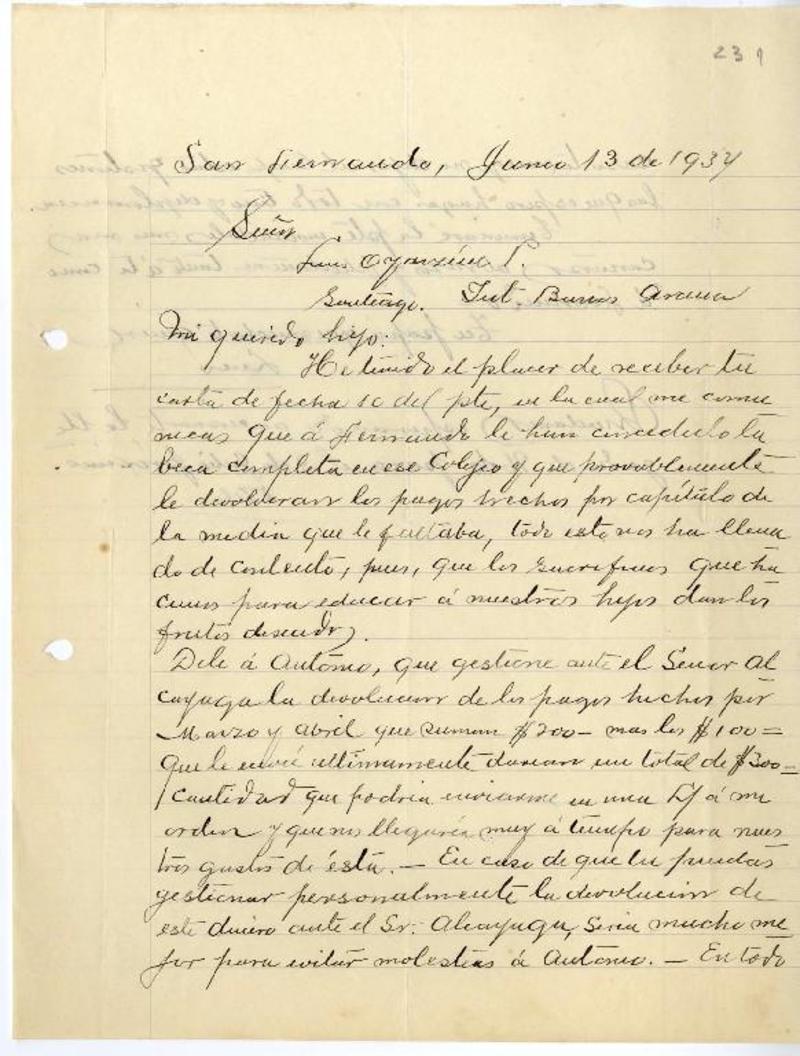 231
San Fernando, Junio 13 de 1934
Señor
Luis Oyarzún P.
Santiago. Inst. Barros Arana
Mi querido hijo:
He tenido el placer de recibir tu
carta de fecha 10 del pte, en la cual me comu
nicas que á Fernando le han concedido la
beca completa en ese Colejio y que provablemente
le devolveran los pagos hechos por capítulo de
la media que le faltaba, todo esto nos ha llena
do de contento, pues, que los sacrificios que ha
cemos para educar á nuestros hijos dan los
frutos deseados.
Dile á Antonio, que gestione ante el Señor Al
cayaga la devolucion de los pagos hechos por
Marzo y Abril que suman $200- mas los $100=
que le envié ultimamente darian un total de $300=
cantidad que podria enviarme en una á mi
orden y que nos llegaria muy á tiempo para nues
tros gastos de ésta. — En caso de que tu puedas
gestionar personalmente la devolución de
este dinero ante el Sr. Alcayaga, seria mucho me
jor para evitar molestias á Antonio. — En todo